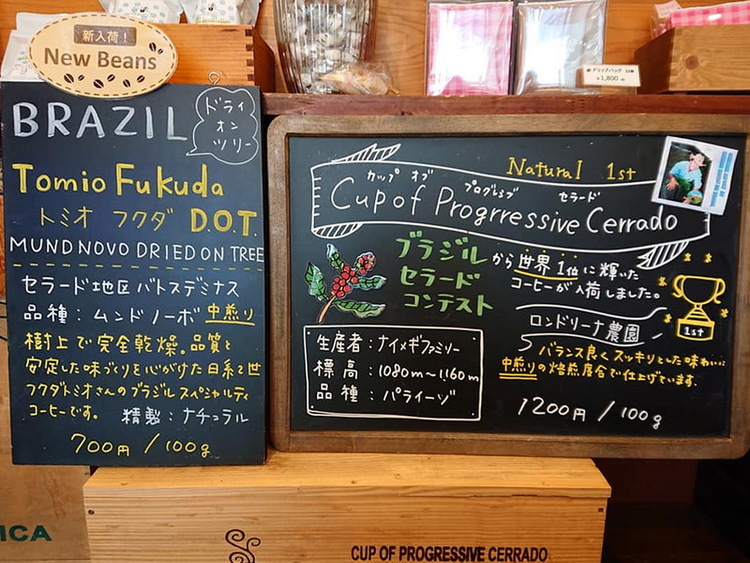 新入荷！
New Beans
BRAZIL
ドライ
オン
ツリー
Tomio Fukuda
トミオ フクダ D.O.T.
MUNDNOVO DRIED ON TREE
セラード地区 パトスデミナス
品種：ムンドノーボ 中煎り
樹上で完全乾燥。品質と
安定した味づくりを心がけた日系2世
フクダトミオさんのブラジルスペシャルティ
コーヒーです。 精製：ナチュラル
700円 / 100g
ドリップバッグ
¥1,800
Natural 1st
カップ オブ プログレシブ セラード
Cup of Progrressive Cerrado
ブラジル
セラード
コンテスト
から世界1位に輝いた
コーヒーが入荷しました。
1st
ロンドリーナ農園
生産者：ナイメギファミリー
標高：1080m〜1160m
品種：パライーゾ
バランス良くスッキリとした味わいに
中煎りの焙煎度合で仕上げています。
1200円 / 100g
ICA
CUP OF PROGRESSIVE CERRADO